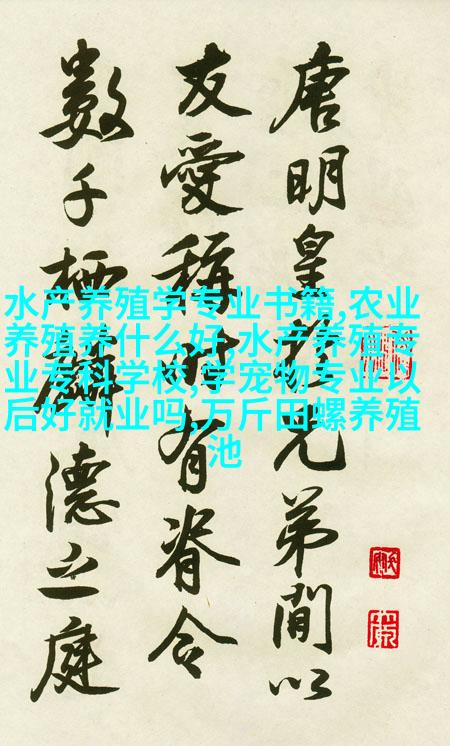 水产养殖学专业书籍,农业
养殖养什么好,水产养殖专
业专科学校,学宠物专业以
后好就业吗,万斤田螺养殖
池
唐明皇於兄弟間以
友愛稱時有脊令
數千栖麟德之庭